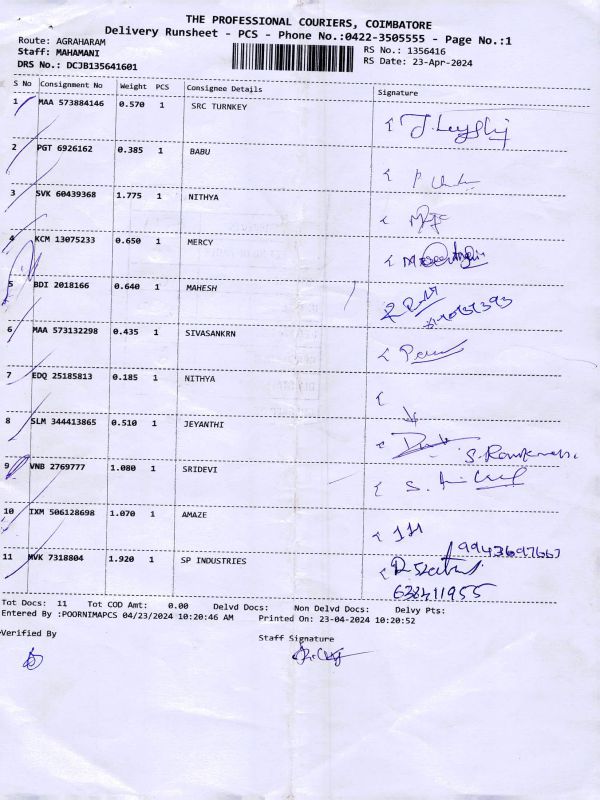 THE PROFESSIONAL COURIERS, COIMBATORE
Delivery Runsheet - PCS - Phone No.:0422-3505555 - Page No.:1
Route: AGRAHARAM
Staff: MAHAMANI
DRS No.: DCJB135641601
RS No.: 1356416
RS Date: 23-Apr-2024
S No Consignment No Weight PCS Consignee Details Signature
1 MAA 573884146 0.570 1 SRC TURNKEY
2 PGT 6926162 0.385 1 BABU
3 SVK 60439368 1.775 1 NITHYA
4 KCM 13075233 0.650 1 MERCY
5 BDI 2018166 0.640 1 MAHESH
6 MAA 573132298 0.435 1 SIVASANKRN
7 EDQ 25185813 0.185 1 NITHYA
8 SLM 344413865 0.510 1 JEYANTHI
9 VNB 2769777 1.080 1 SRIDEVI
10 IXM 506128698 1.070 1 AMAZE
11 MVK 7318804 1.920 1 SP INDUSTRIES
Tot Docs: 11 Tot COD Amt: 0.00 Delvd Docs: Non Delvd Docs: Delvy Pts:
Entered By :POORNIMAPCS 04/23/2024 10:20:46 AM Printed On: 23-04-2024 10:20:52
Verified By
Staff Signature